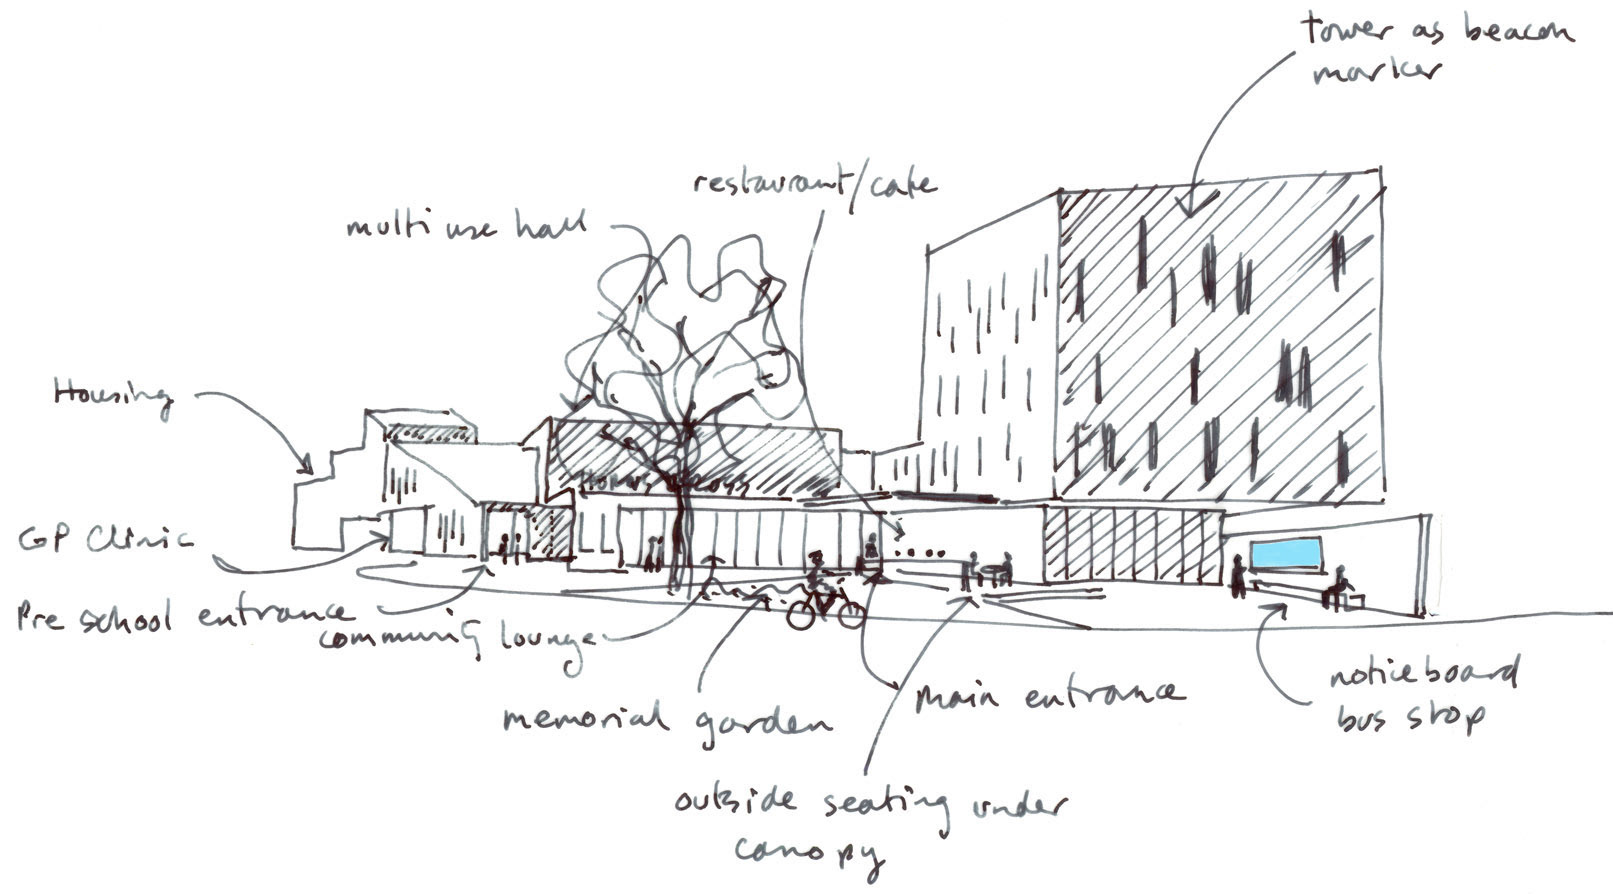 tower as beacon
marker
restaurant/cafe
multi use hall
Housing
GP Clinic
Pre school entrance
community lounge
memorial garden
main entrance
noticeboard
bus stop
outside seating under
canopy